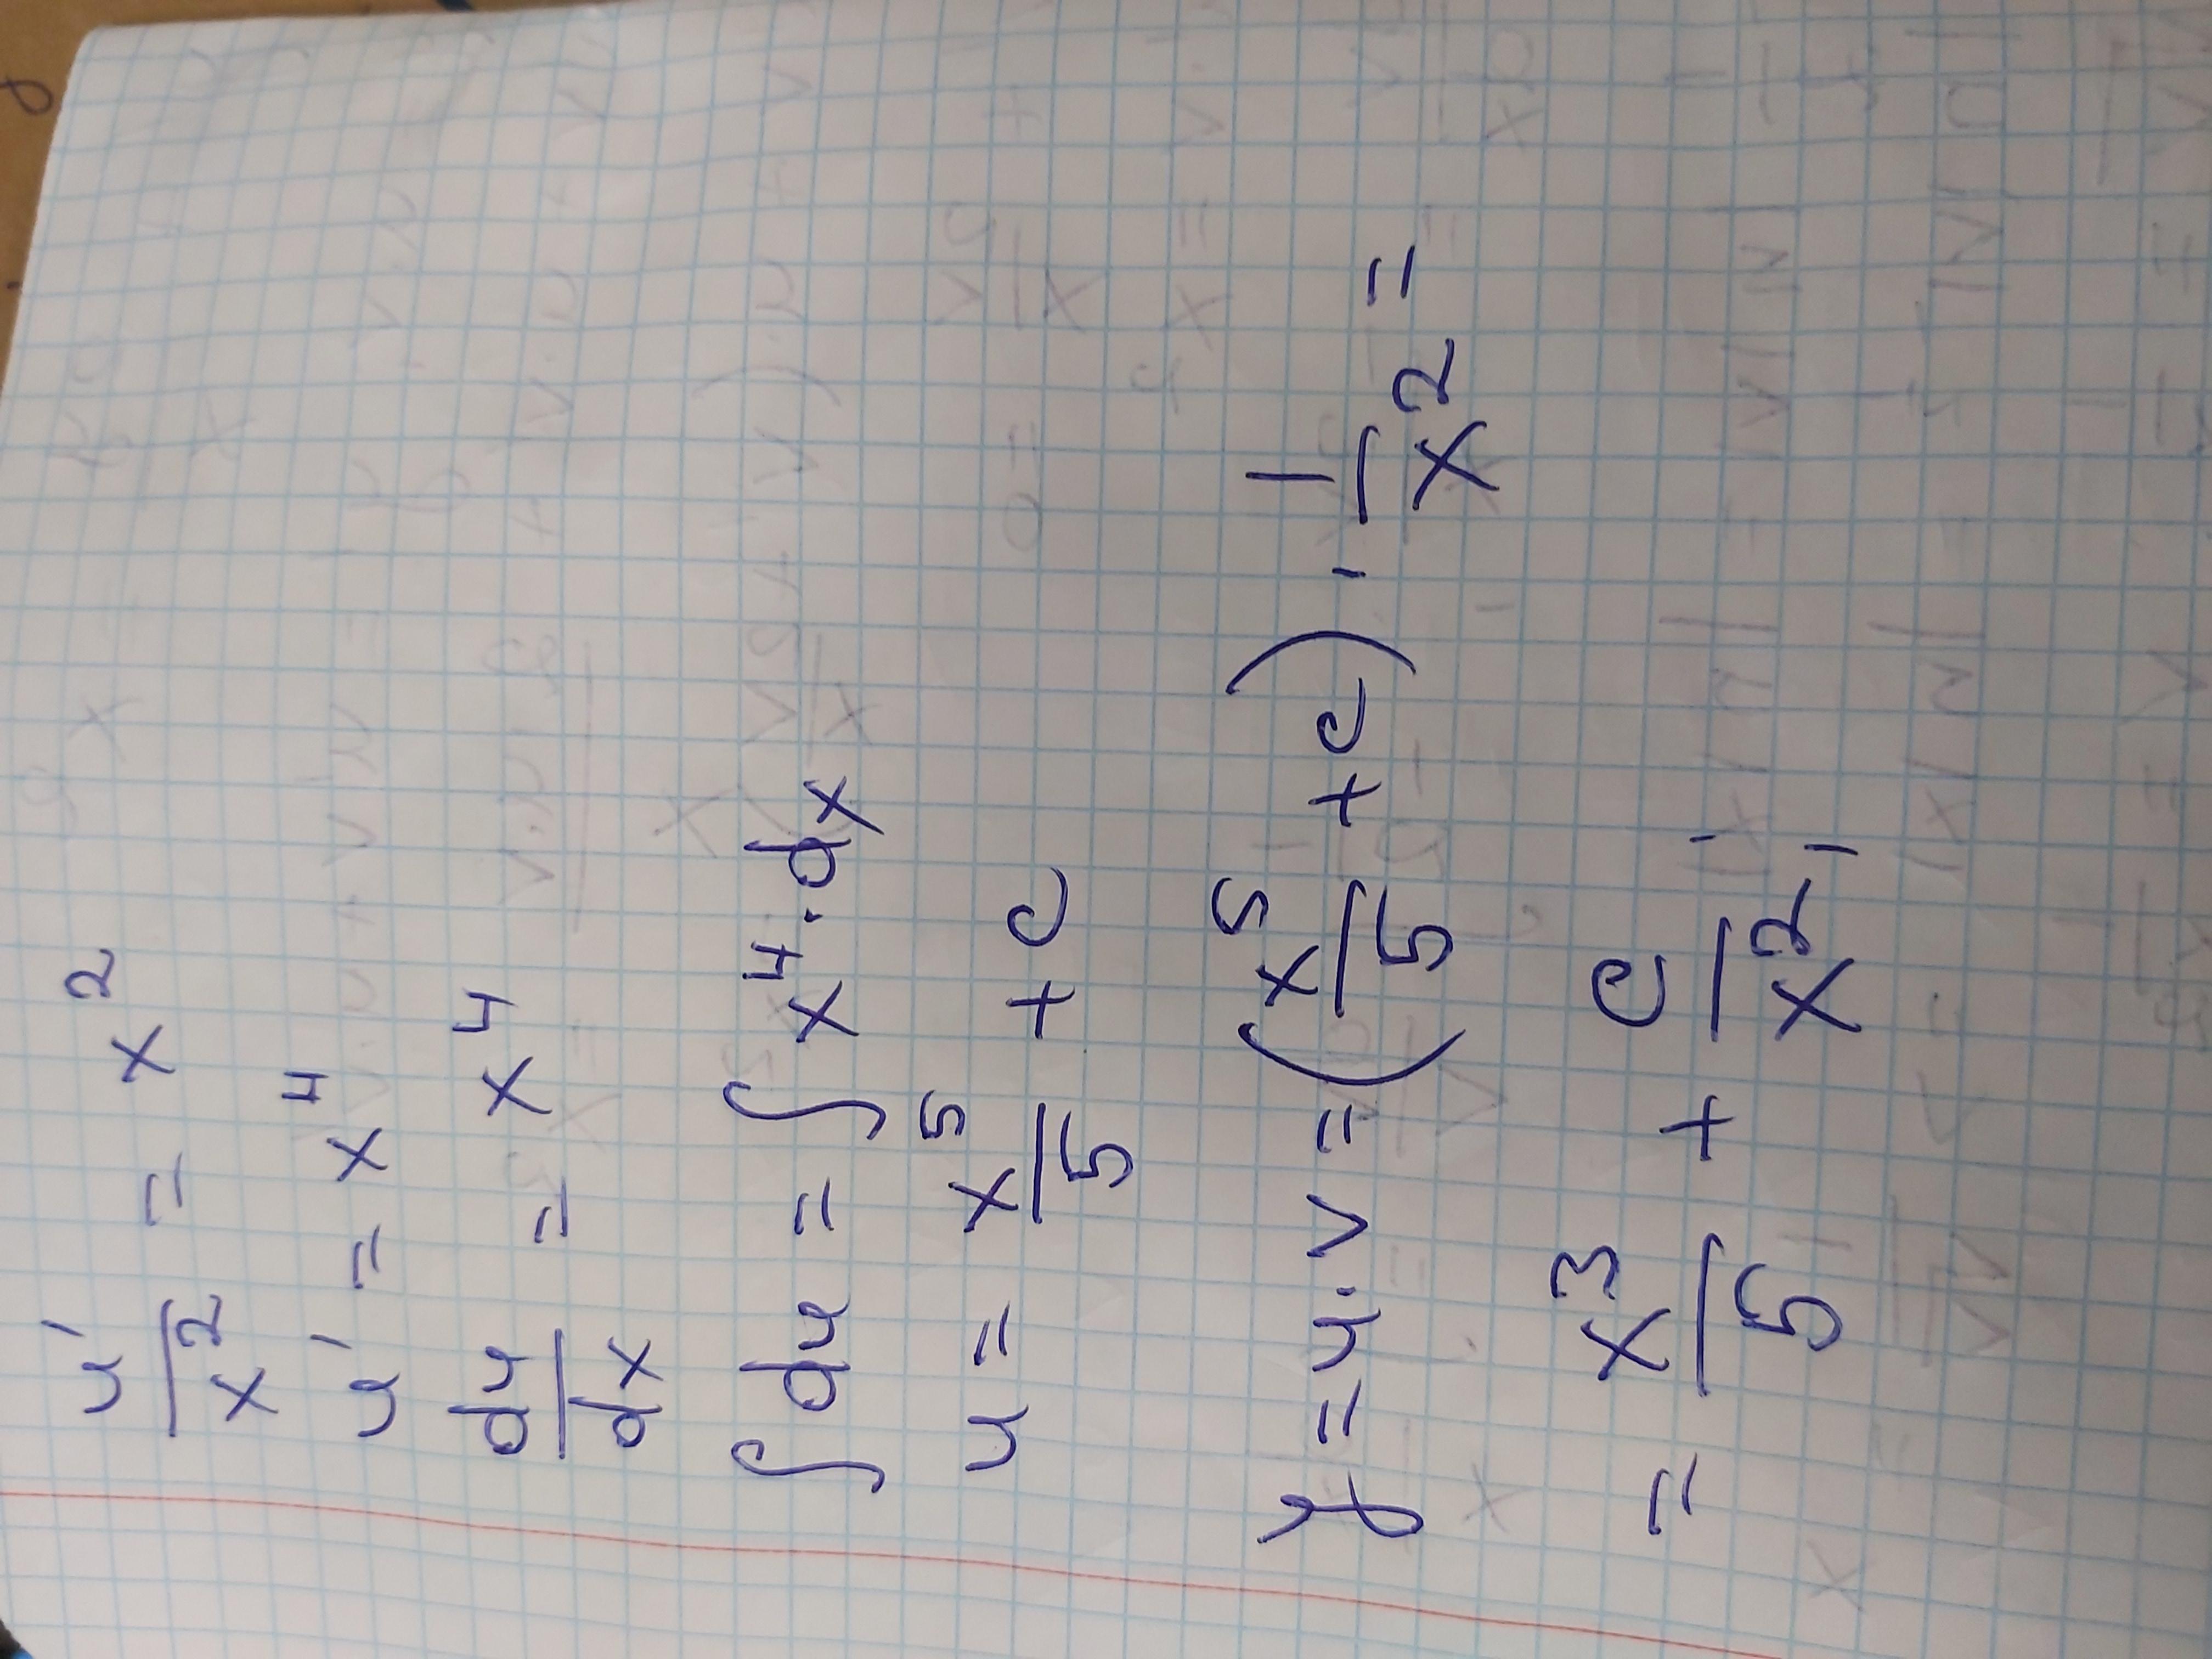 u'/x² = x²
u' = x⁴
du/dx = x⁴
∫ du = ∫ x⁴ · dx
u = x⁵/5 + c
y = u · v = (x⁵/5 + c) · 1/x² =
= x³/5 + c/x²